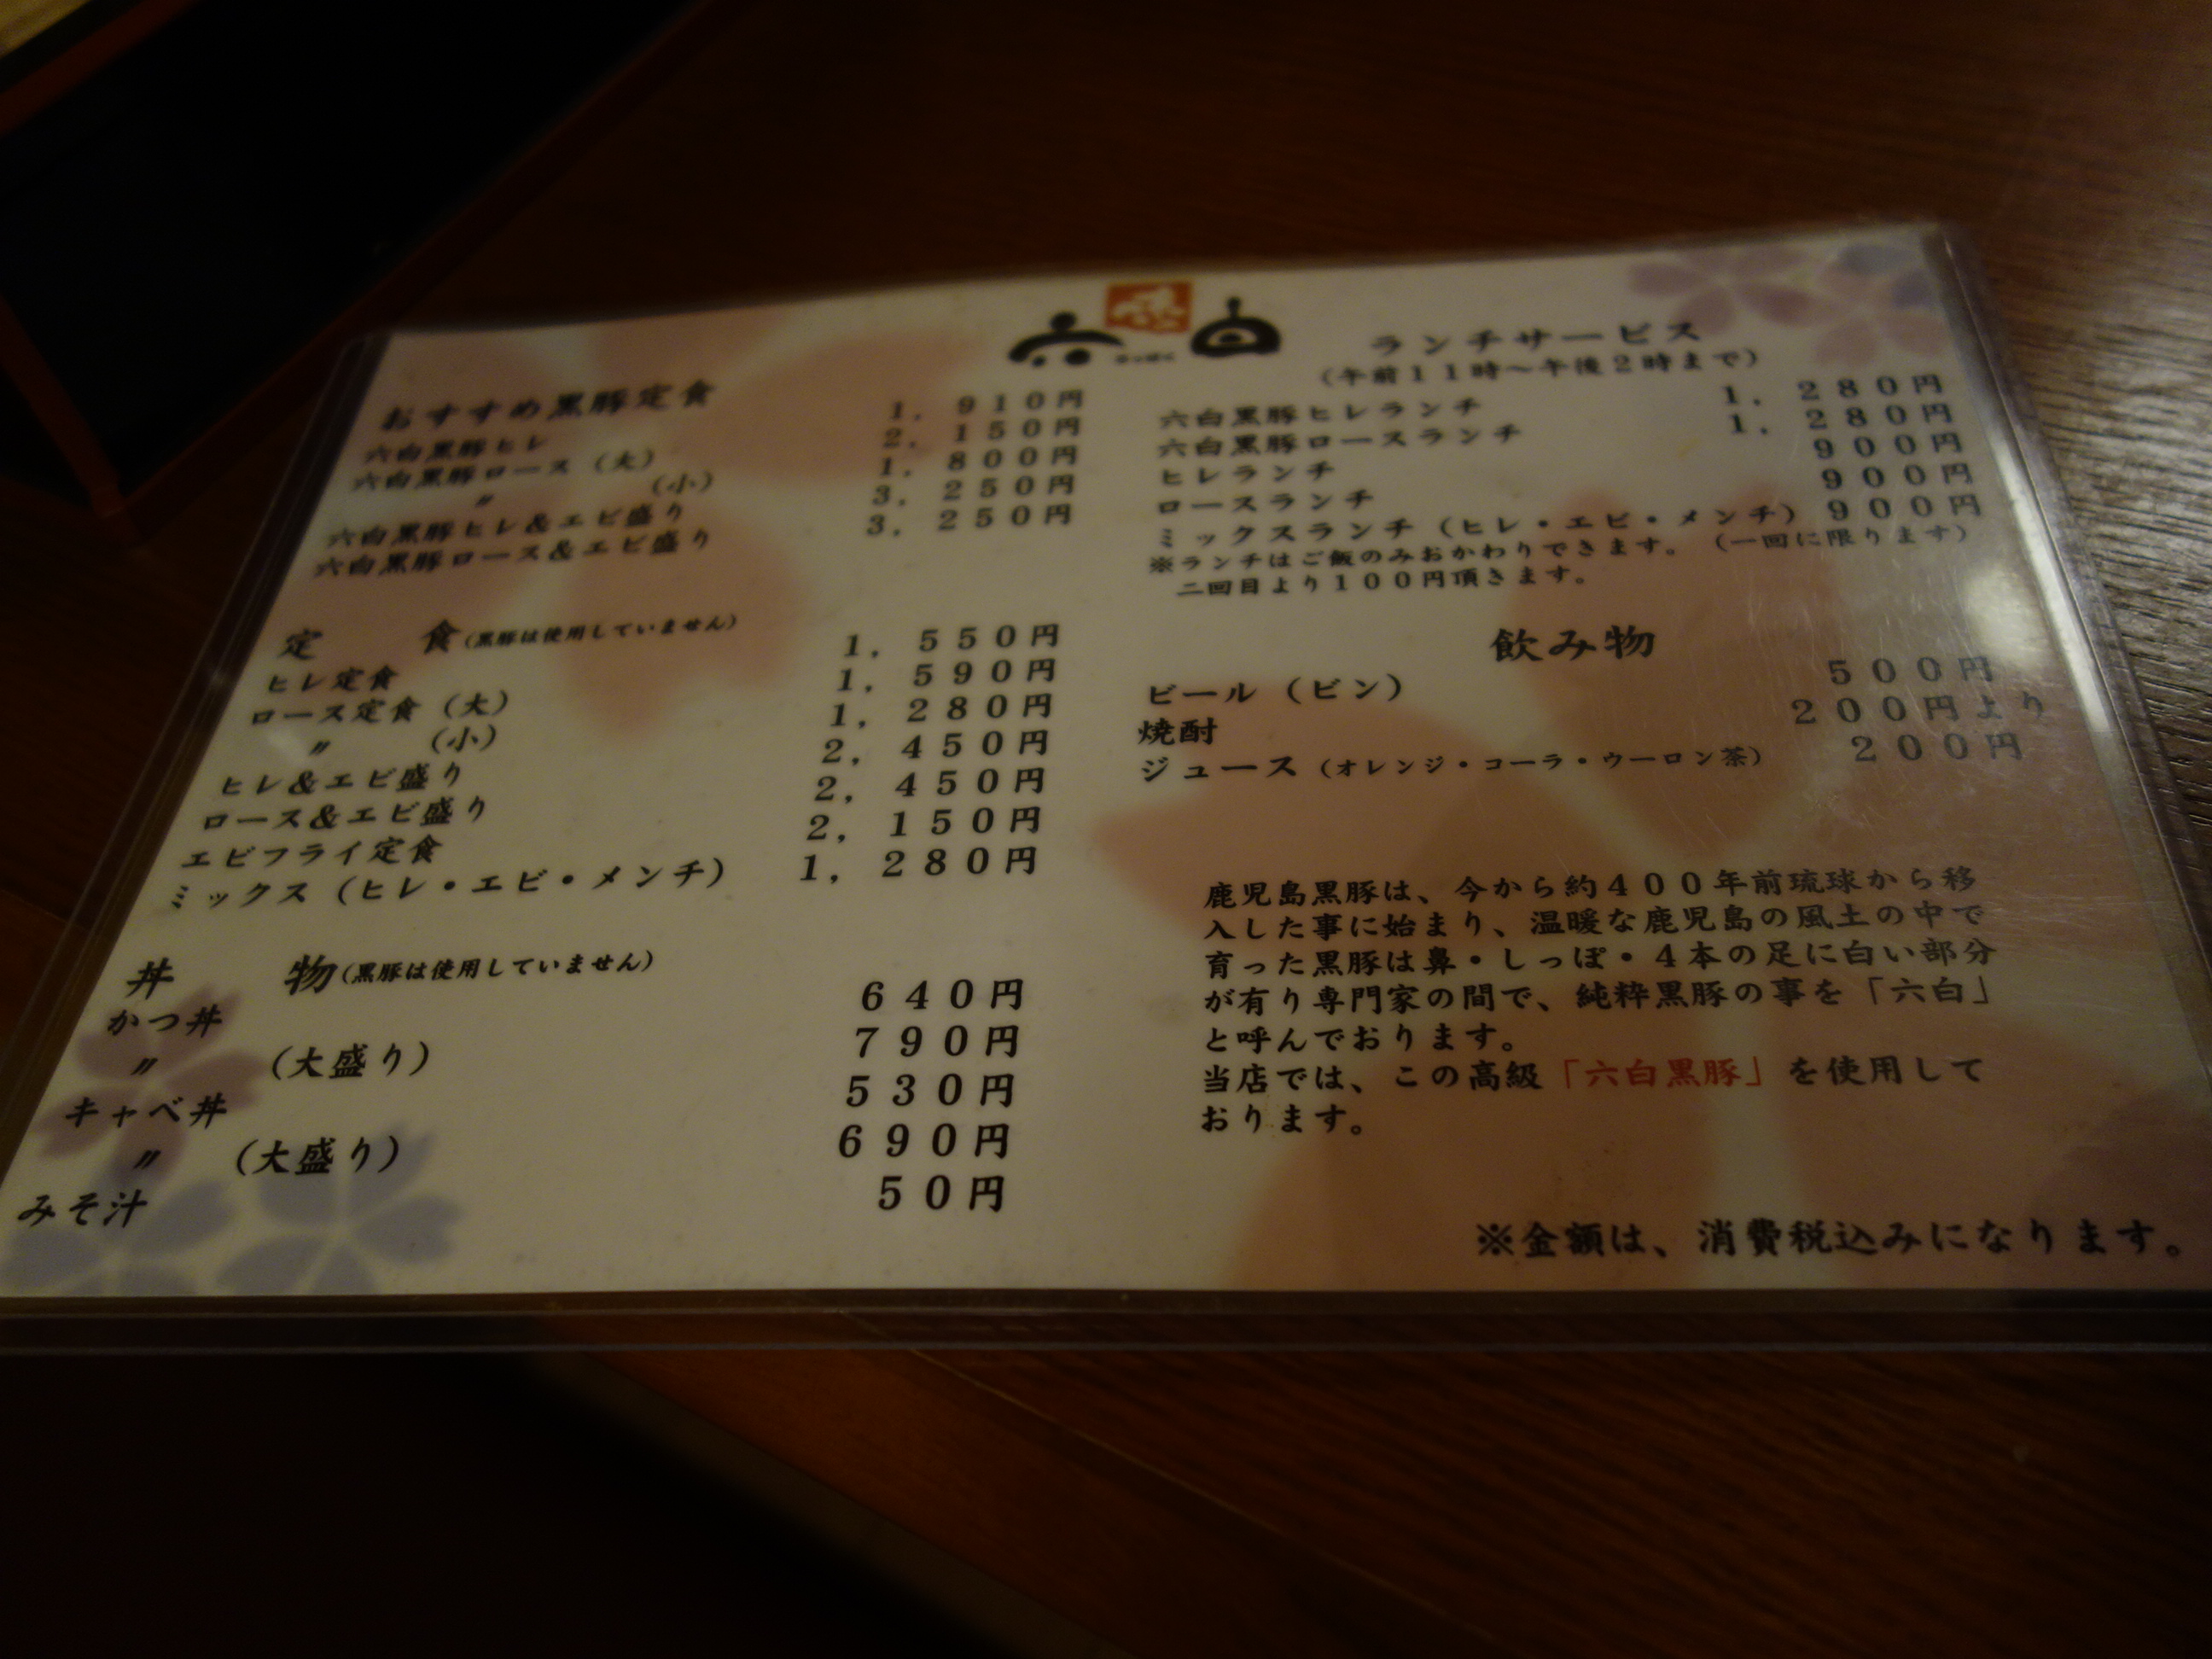 六白
おすすめ黒豚定食
六白黒豚ヒレ 1，910円
六白黒豚ロース（大） 2，150円
〃 （小） 1，800円
六白黒豚ヒレ＆エビ盛り 3，250円
六白黒豚ロース＆エビ盛り 3，250円
定 食（黒豚は使用していません）
ヒレ定食 1，550円
ロース定食（大） 1，590円
〃 （小） 1，280円
ヒレ＆エビ盛り 2，450円
ロース＆エビ盛り 2，450円
エビフライ定食 2，150円
ミックス（ヒレ・エビ・メンチ） 1，280円
丼 物（黒豚は使用していません）
かつ丼 640円
〃 （大盛り） 790円
キャベ丼 530円
〃 （大盛り） 690円
みそ汁 50円
ランチサービス
（午前11時～午後2時まで）
六白黒豚ヒレランチ 1，280円
六白黒豚ロースランチ 1，280円
ヒレランチ 900円
ロースランチ 900円
ミックスランチ（ヒレ・エビ・メンチ） 900円
※ランチはご飯のみおかわりできます。（一回に限ります）
二回目より100円頂きます。
飲み物
ビール（ビン） 500円
焼酎 200円より
ジュース（オレンジ・コーラ・ウーロン茶） 200円
鹿児島黒豚は、今から約400年前琉球から移
入した事に始まり、温暖な鹿児島の風土の中で
育った黒豚は鼻・しっぽ・4本の足に白い部分
が有り専門家の間で、純粋黒豚の事を「六白」
と呼んでおります。
当店では、この高級「六白黒豚」を使用して
おります。
※金額は、消費税込みになります。